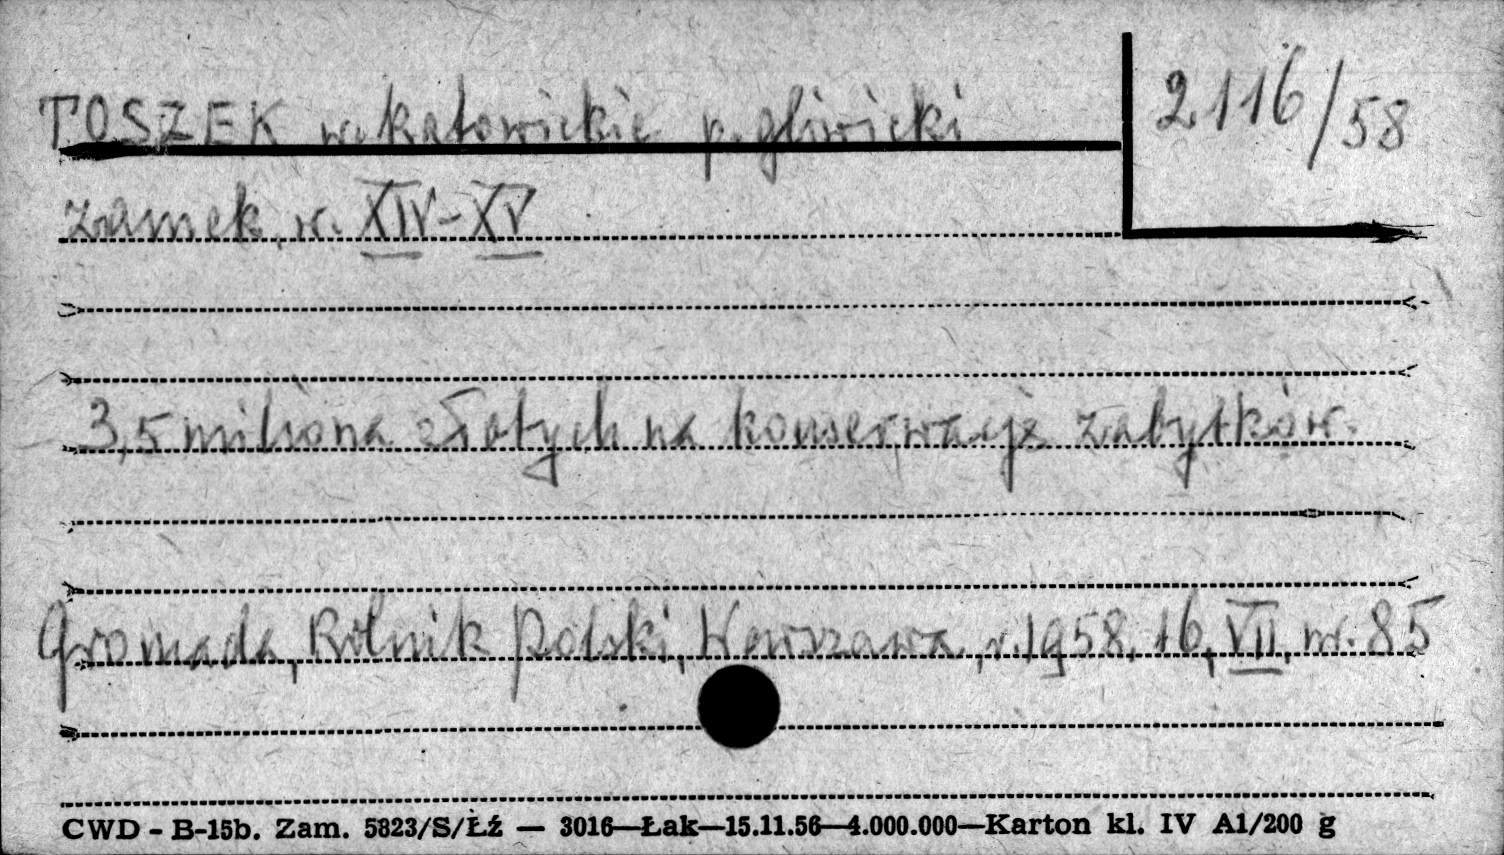 TOSZEK w. katowickie p. gliwicki
2116/58
zamek, w. XIV-XV
3,5 miliona złotych na konserwację zabytków.
Gromada, Rolnik Polski, Warszawa, r. 1958, 16, VII, nr. 85
CWD - B-15b. Zam. 5823/S/Łź — 3016—Łak—15.11.56—4.000.000—Karton kl. IV A1/200 g